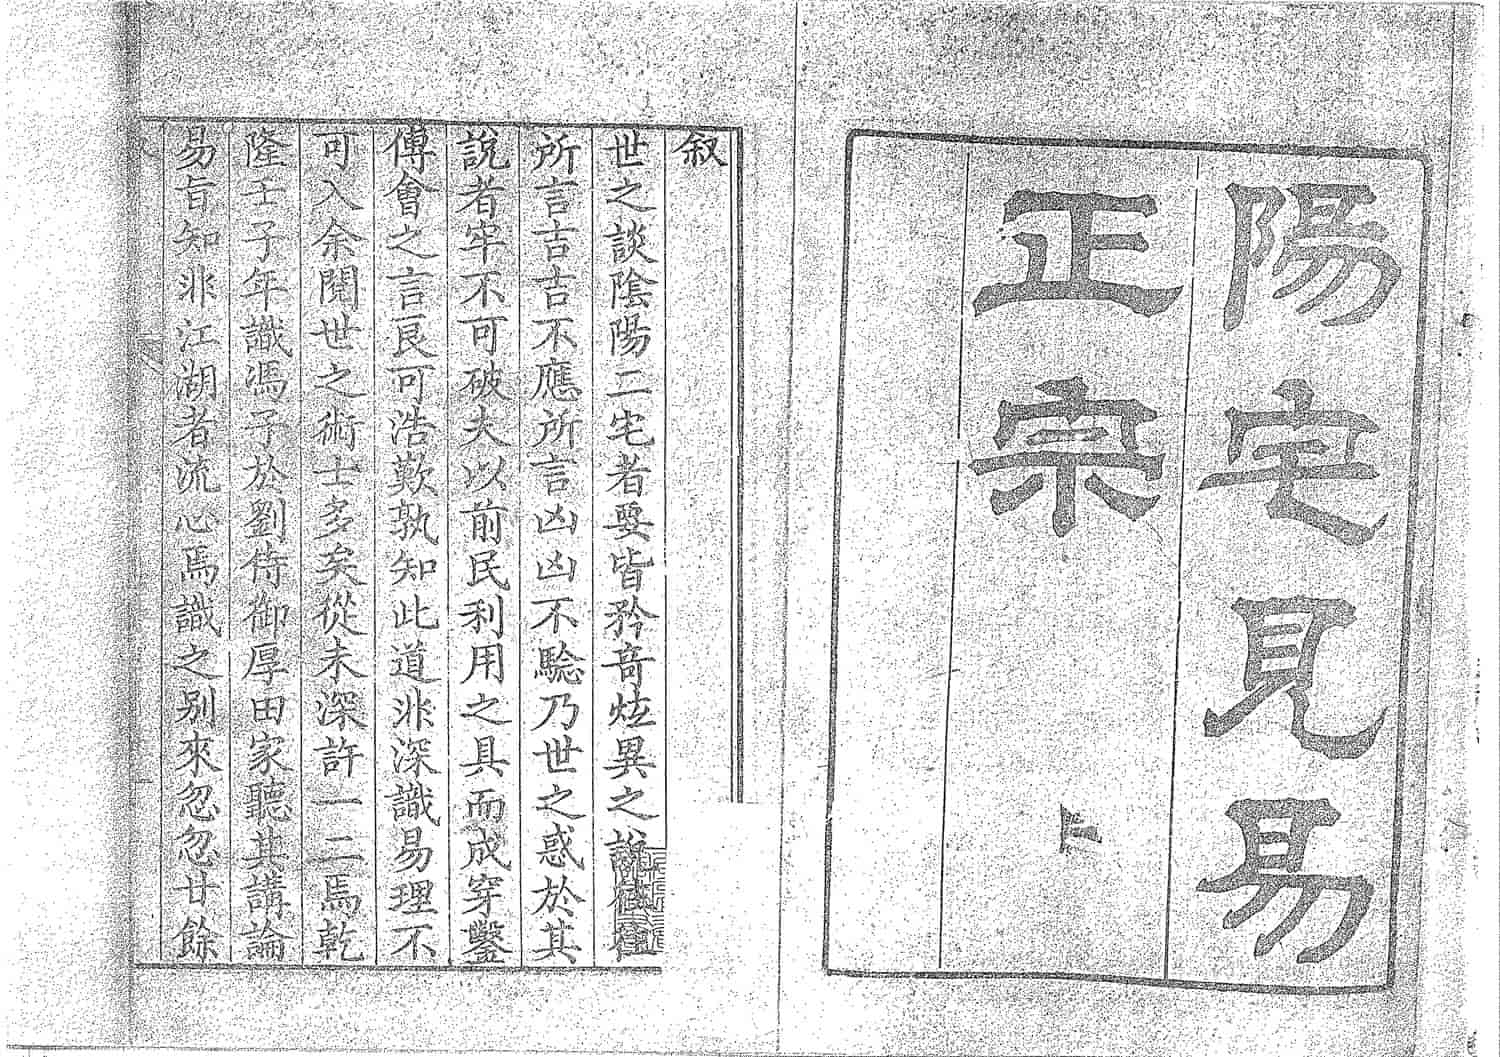 陽宅見易
正宗
上
叙
世之談陰陽二宅者要皆矜奇炫異之說往往
所言吉吉不應所言凶凶不驗乃世之惑於其
說者牢不可破夫以前民利用之具而成穿鑿
傅會之言良可浩歎孰知此道非深識易理不
可入余閱世之術士多矣從未深許一二焉乾
隆壬子年識馮子於劉侍御厚田家聽其講論
易旨知非江湖者流心焉識之别來忽忽廿餘